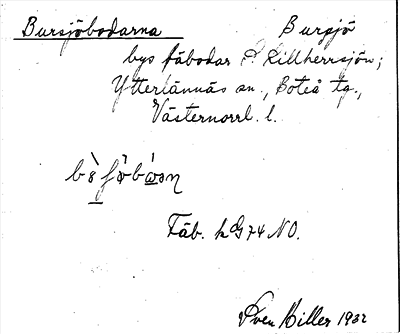 Bursjöbodarna Bursjö
bys fäbodar P. Lillherrsjön;
Ytterlännäs sn., Boteå tg.,
Västernorrl. l.
Fäb. k G74 NO.
Sven Hiller 1932